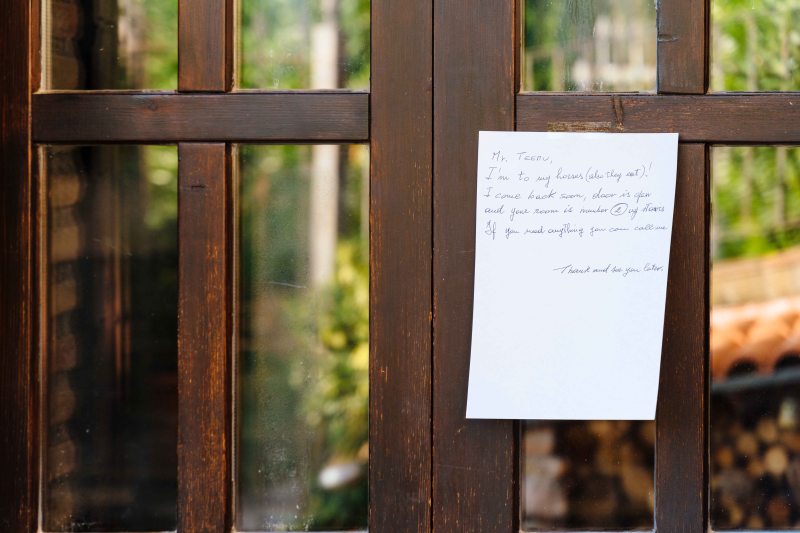 Mr. Teeru,
I'm to my horses (also they eat)!
I come back soon, door is open
and your room is number 2 up stairs
If you need anything you can call me
Thank and see you later.